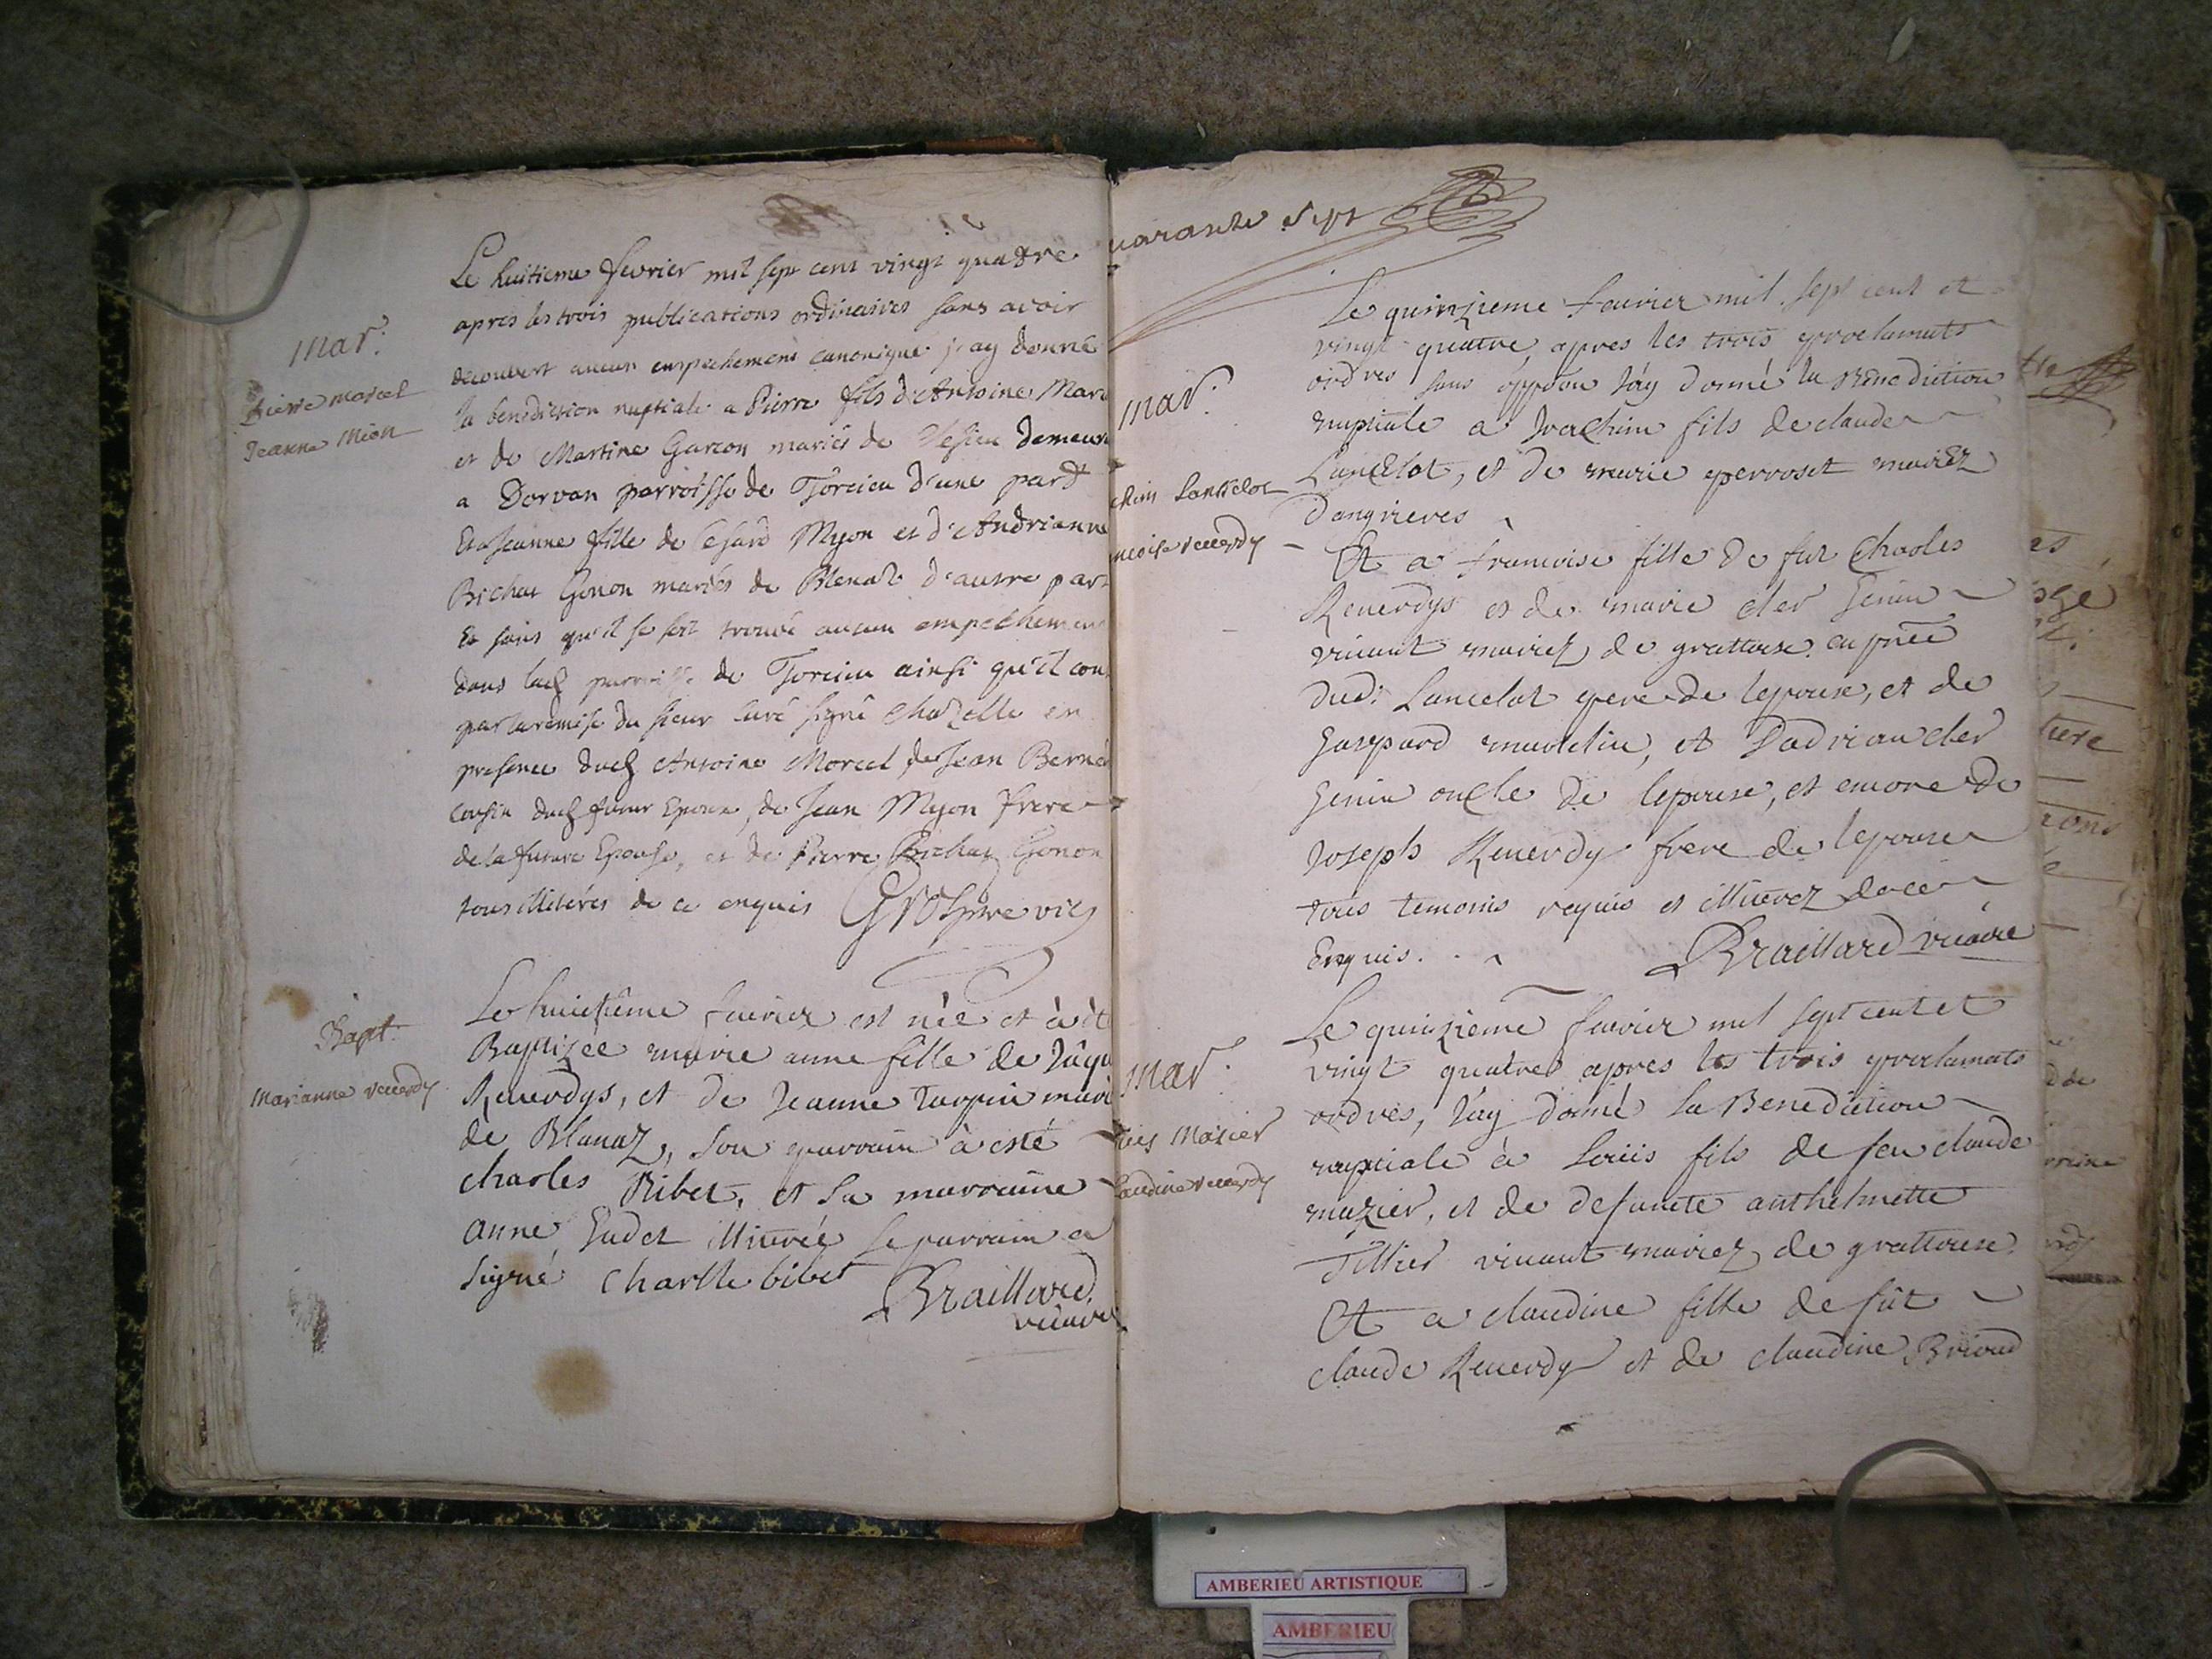 Mar.
Pierre Marcel
Jeanne Mion
Le huitieme fevrier mil sept cent vingt quattre
apres les trois publications ordinaires sans avoir
decouvert aucun empechement canonique j'ay donné
la benediction nuptiale a Pierre fils d'Antoine Marc
et de Martine Garcon mariés de demeur
a Dorvan parroisse de Torcieu d'une part
Et a Jeanne fille de Cesard Myon et d'Andrianne
Bichat Gonon mariés de Blenat d'autre par
Et sans qu'il se soit trouvé aucun empechemen
dans lad parroisse de Torcieu ainsi qu'il con
par la remise du sieur curé signé Chazelle en
presence dud Antoine Morcel de Jean Berne
cousin dud futur Epoux, de Jean Myon frere
de la future Epouse, et de Pierre Bichat Gonon
tous illiterés de ce enquis
Bapt.
Marianne reverdy
Le huictieme fevrier est née et à ét
Baptizée marie anne fille de Jaqu
Reverdys, et de Jeanne Turpin mari
de Blanaz, son parrain à esté
charles Ribet, et sa marraine
anne Judet illiterée le parrain a
signé Charlle bibet Braillard
vicaire
uarante sept
Mar.
chim Lancelot
ncoise reverdy
Le quinzieme fevrier mil sept cent et
vingt quattre, apres les trois proclamats
ordres sans oppõn j'ay donné la Benediction
nuptiale a Joachim fils de claude
Lancelot, et de marie perroset mariez
dangrieres
Et a francoise fille de fut Charles
Reverdys et de marie cler Genin
vivant mariez de grattoux en pñce
dud: Lancelot pere de lepoux, et de
Gaspard martelin, et dadrian cler
Genin oncle de lepouse, et encore de
Joseph Reverdy frere de lepouse
tous temoins requis et illiterez de ce
Enquis. Braillard vicaire
Mar.
uis Mazier
laudine reverdy
Le quinzieme fevrier mil sept cent et
vingt quatre apres les trois proclamats
ordres, j'ay donné la Benediction
nuptiale à Loüis fils de feu claude
mazier, et de defuncte anthelmette
Tillier vivant mariez de grattoux.
Et a claudine fille de fût
claude Reverdy et de claudine Brioud
AMBERIEU ARTISTIQUE
AMBERIEU